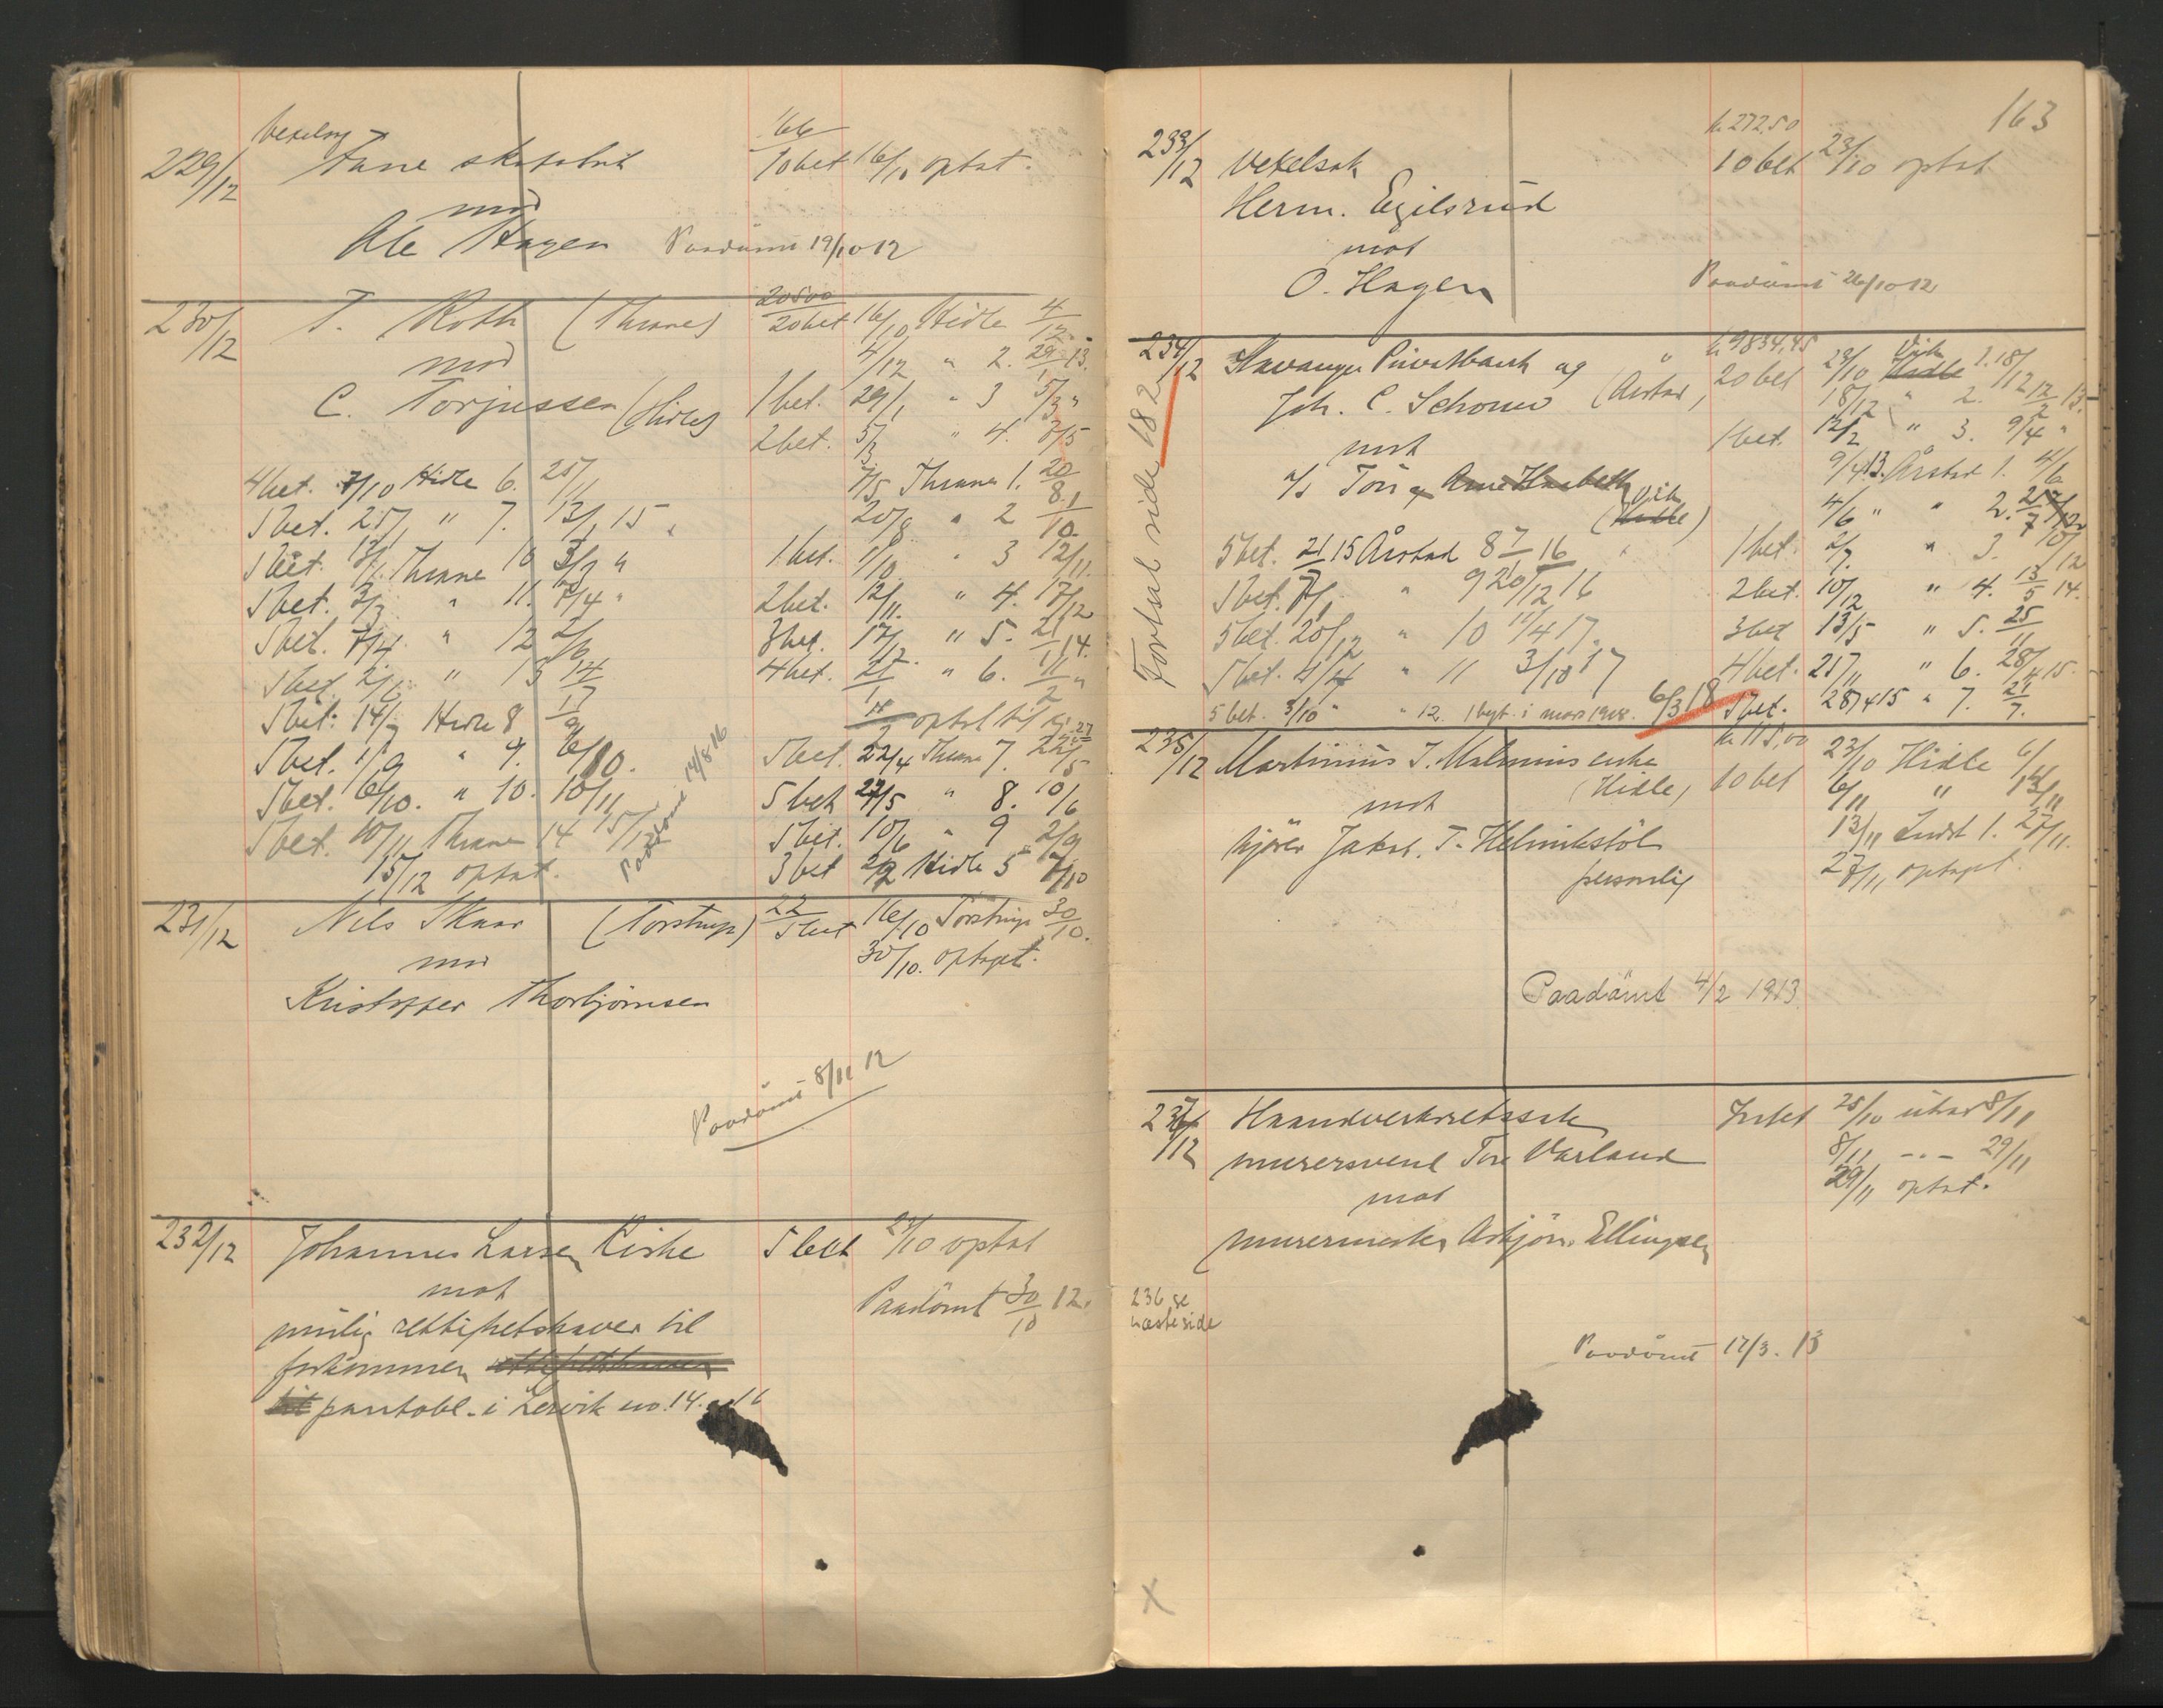 229/12
Ane skofabrik
10 bet 16/10 optat.
mod
Ole Hagen Paadömt 19/10 12
230/12 T. Roth (Thrane) 20 bet 16/10 Hidle 4/12
mod 4/12 " 2. 29/1 13.
C. Torjussen (Hidle) 1 bet. 29/1 " 3 5/3 "
2 bet. 5/3 " 4. 7/5
4 bet. 7/10 Hidle 6. 25/11 7/5 Thrane 1. 20/8
5 bet. 25/11 " 7. 13/1 15 20/8 " 2 1/10
5 bet. 13/1 Thrane 10 3/3 " 1 bet. 1/10 " 3 12/11.
5 bet. 3/3 " 11. 7/4 " 2 bet. 12/11. " 4. 17/12
5 bet. 7/4 " 12 2/6 3 bet. 17/12. " 5. 21/1 14.
5 bet. 2/6 " 13 14/7 4 bet. 21/1 " 6. 11/2 "
5 bet. 14/7 Hidle 8 1/9
5 bet. 1/9 " 9. 6/10. 5 bet. 22/4 Thrane 7. 27/5
5 bet. 6/10. " 10. 10/11 5 bet 27/5 " 8. 10/6
5 bet. 10/11 Thrane 14 15/12 5 bet. 10/6 " 9 2/9
15/12 optat. 3 bet 2/9 Hidle 5 7/10
Paadömt 14/8 16
231/12 Nils Skaar (Torstrup) 5 bet 16/10 Torstrup 30/10.
mod 30/10. optaget.
Kristoffer Thorbjörnsen
Paadömt 8/11 12
232/12 Johannes Larsen Kirke 5 bet 23/10 optat
mot Paadömt 30/10 12.
mulig rettighetshaver til
forkommen
pantobl. i Lervik no. 14. og 16
163
kr. 272.50
233/12 Vekselsak 10 bet 23/10 optat
Herm. Egilsrud
mot
O. Hagen Paadömt 26/10 12
kr. 9834,45
234/12 Stavanger Privatbank og 20 bet 23/10 Vik Hidle 1. 18/12
Joh. C. Schouw (Aarstad) 18/12 " 2. 12/2 13.
mot 1 bet. 12/2 " 3. 9/4 "
A/S Tön og (Vik) 9/4 13. Årstad 1. 4/6
(Hidle) 4/6 " " 2. 2/7
5 bet. 21/7 15 Årstad 8 7/1 16 1 bet. 2/7. " 3. 10/12
5 bet. 7/1 " 9 20/12 16 2 bet. 10/12 " 4. 13/5 14.
5 bet. 20/12 " 10 11/4 17. 3 bet 13/5 " 5. 25/11
5 bet. 11/4 " 11 3/10 17 4 bet. " 6. 28/4 15.
5 bet. 3/10 " " 12. i mars 1918. 6/3 18 5 bet. 28/4 15 " 7. 21/7.
Fortsat side 182
kr. 115,00
235/12 Martinius J. Malmins enke 10 bet 23/10 Hidle 6/11
(Hidle) 6/11 " 13/11
mot 13/11 Indst 1. 27/11.
kjörer Jakob. T. Helmikstöl 27/11 optaget.
personlig
Paadömt 4/2 1913
237/12 Haandverksretssak Intet 25/10 utsat 8/11
murersvend Tore Varland 8/11 -.- 29/11
mot 29/11 optat.
murermester Asbjörn Ellingsen
236 se
næste side
Paadömt 17/3. 13
X